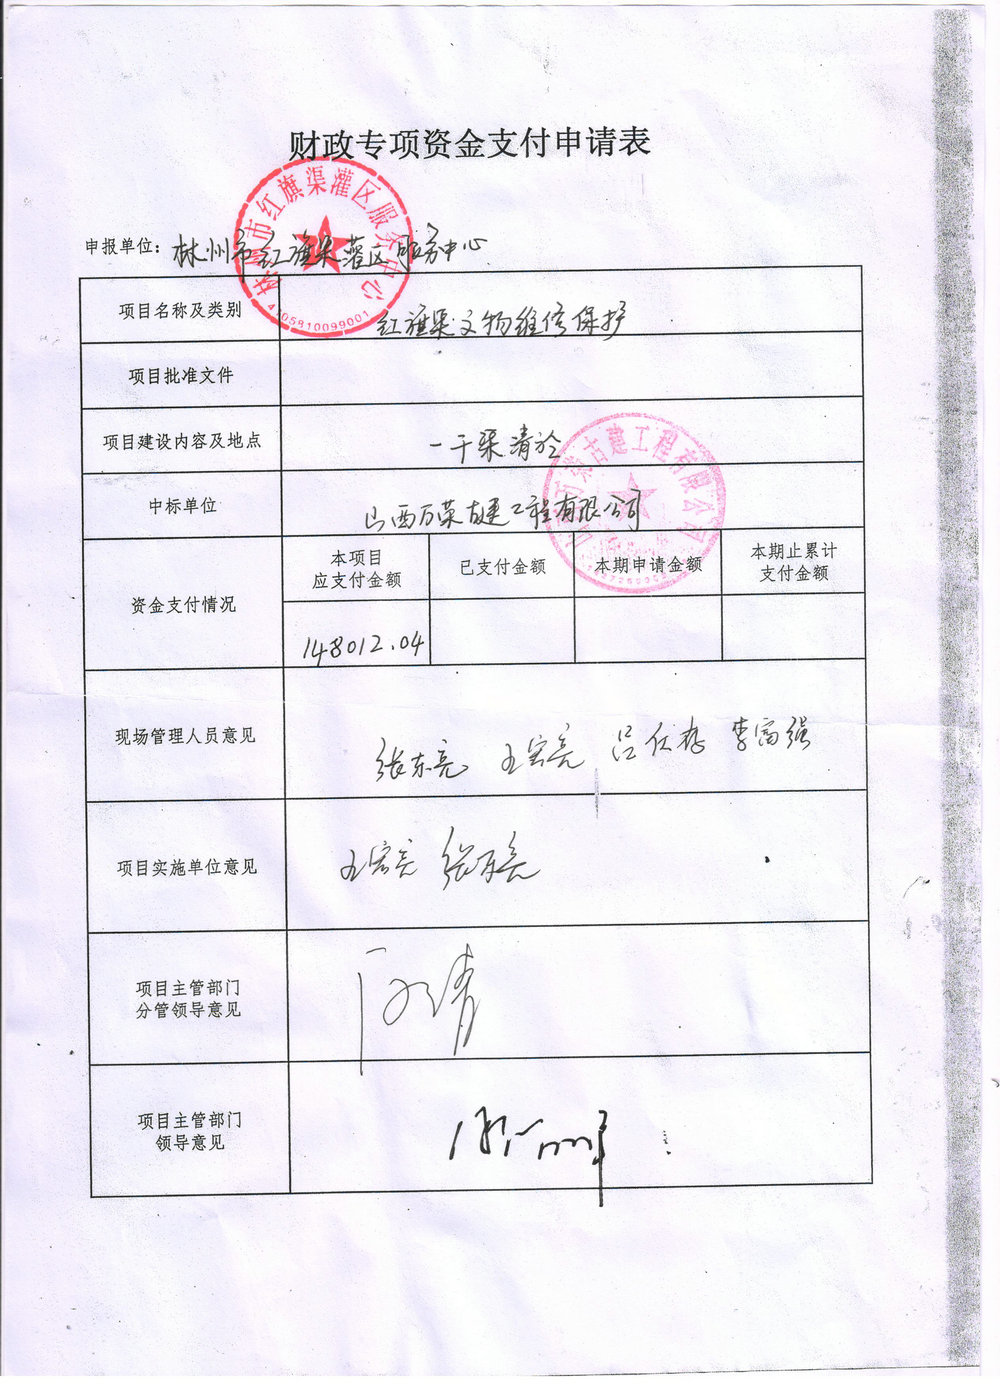 财政专项资金支付申请表
林州市红旗渠灌区服务中心
4105810099001
申报单位：林州市红旗渠灌区服务中心
项目名称及类别 红旗渠文物维修保护
项目批准文件
项目建设内容及地点 一干渠清淤
中标单位 山西万荣古建工程有限公司
山西万荣古建工程有限公司
资金支付情况
本项目
应支付金额
已支付金额
本期申请金额
本期止累计
支付金额
148012.04
现场管理人员意见 张东亮 王宏亮 李富强
项目实施单位意见 王宏亮
项目主管部门
分管领导意见
项目主管部门
领导意见